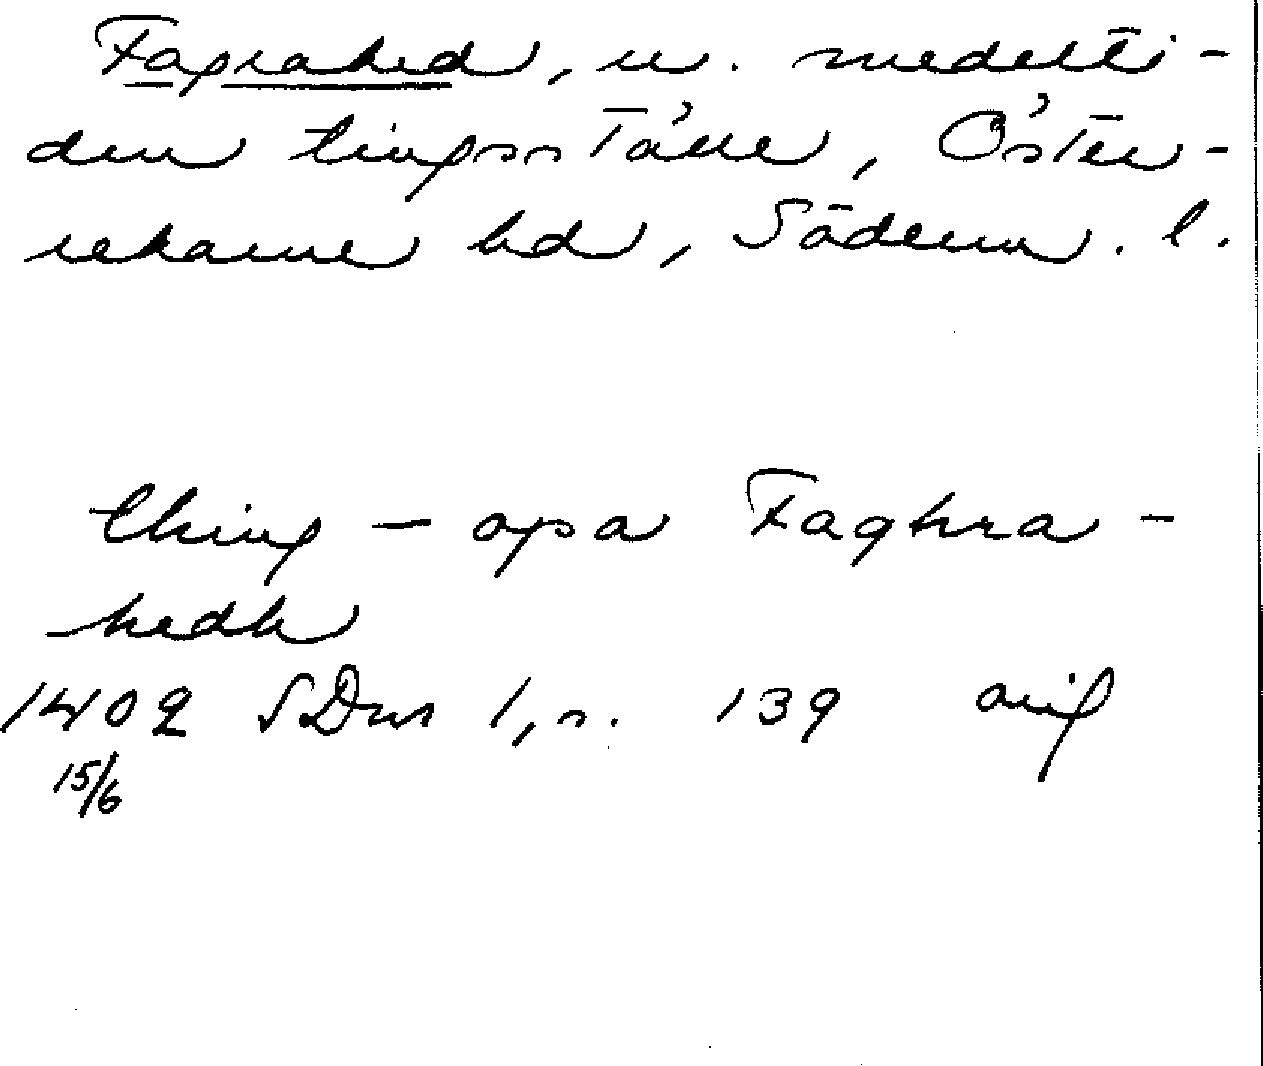 Fagrahed, u. medelti-
den tingsställe, Öster-
rekarne hd, Söderm. l.
thing - opa Faghra-
hedh
1402 SDns 1, s. 139 orig
15/6